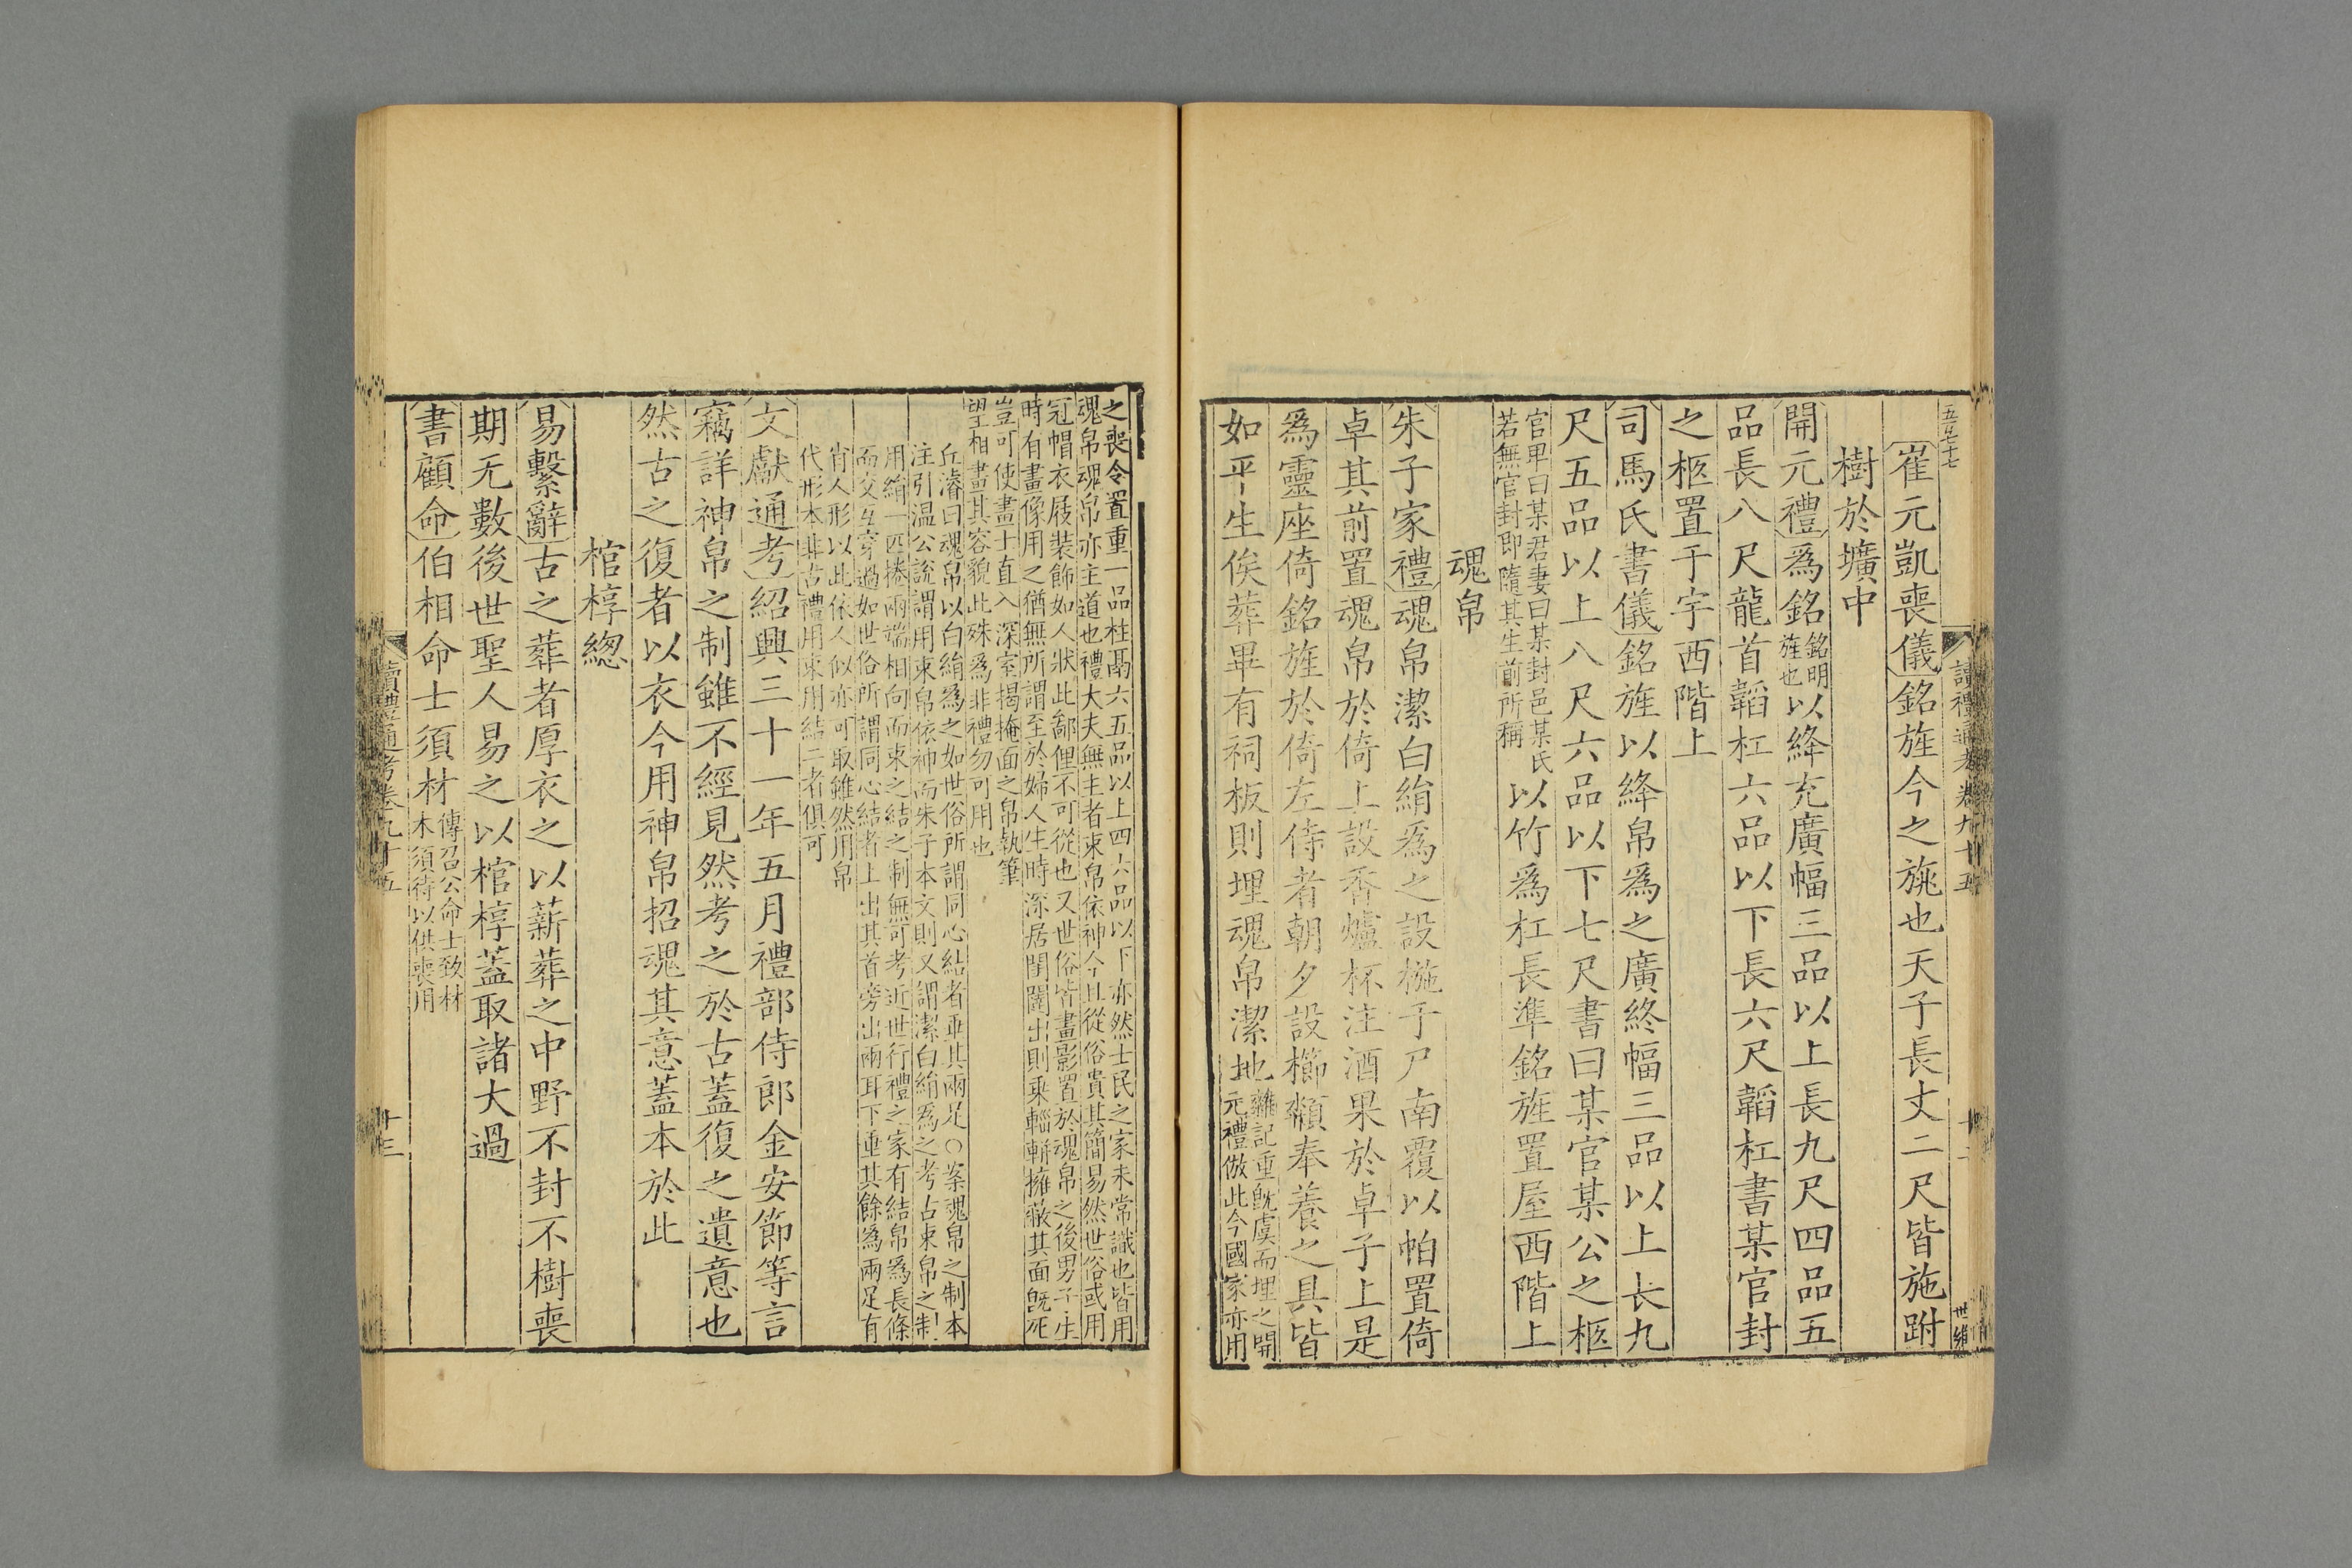 五百七十七
讀禮通考卷九十五
十二
世綃
崔元凱喪儀銘旌今之旐也天子長丈二尺皆施跗
樹於壙中
開元禮爲銘銘明旌也以絳充廣幅三品以上長九尺四品五
品長八尺龍首韜杠六品以下長六尺韜杠書某官封
之柩置于宇西階上
司馬氏書儀銘旌以絳帛爲之廣終幅三品以上長九
尺五品以上八尺六品以下七尺書曰某官某公之柩
官卑曰某君妻曰某封邑某氏
若無官封即隨其生前所稱以竹爲杠長準銘旌置屋西階上
魂帛
朱子家禮魂帛潔白絹爲之設椸于尸南覆以帕置倚
卓其前置魂帛於倚上設香爐杯注酒果於卓子上是
爲靈座倚銘旌於倚左侍者朝夕設櫛頮奉養之具皆
如平生俟葬畢有祠板則埋魂帛潔地雜記重旣虞而埋之開
元禮倣此今國家亦用
之喪令置重一品柱鬲六五品以上四六品以下亦然士民之家未常識也皆用
魂帛魂帛亦主道也禮大夫無主者束帛依神今且從俗貴其簡易然世俗或用
冠帽衣屐裝飾如人狀此鄙俚不可從也又世俗皆畫影置於魂帛之後男子生
時有畫像用之猶無所謂至於婦人生時深居閨闥出則乘輜輧擁蔽其面旣死
豈可使畫士直入深室揭掩面之帛執筆
望相畫其容貌此殊爲非禮勿可用也
丘濬曰魂帛以白絹爲之如世俗所謂同心結者垂其兩足○案魂帛之制本
注引温公說謂用束帛依神而朱子本文則又謂潔白絹爲之考古束帛之制
用絹一匹捲兩端相向而束之結之制無可考近世行禮之家有結帛爲長條
而交互穿過如世俗所謂同心結者上出其首旁出兩耳下垂其餘爲兩足有
肖人形以此依人似亦可取雖然用帛
代形本非古禮用束用結二者俱可
文獻通考紹興三十一年五月禮部侍郎金安節等言
竊詳神帛之制雖不經見然考之於古蓋復之遺意也
然古之復者以衣今用神帛招魂其意蓋本於此
棺椁總
易繫辭古之葬者厚衣之以薪葬之中野不封不樹喪
期无數後世聖人易之以棺椁蓋取諸大過
書顧命伯相命士須材傳召公命士致材
木須待以供喪用
讀禮通考卷九十五
十三